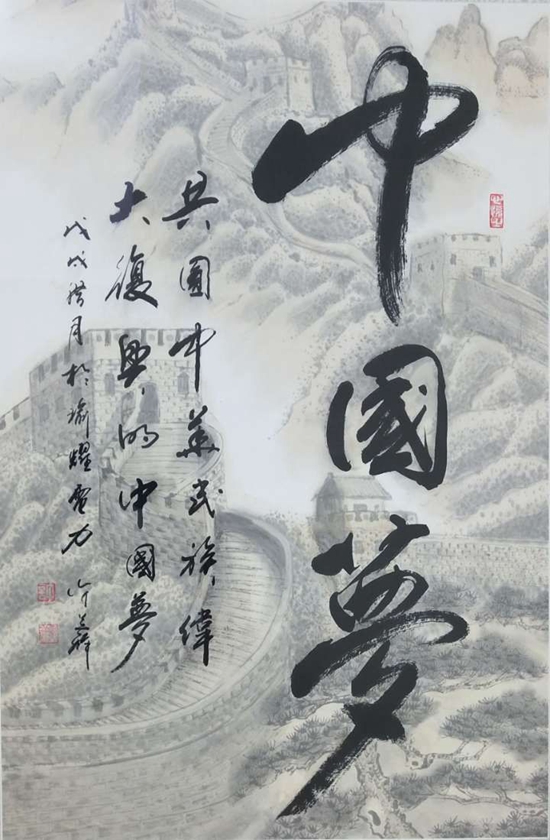 中國夢
共圓中華民族偉
大復興的中國夢
戊戌臘月於瑜耀電力